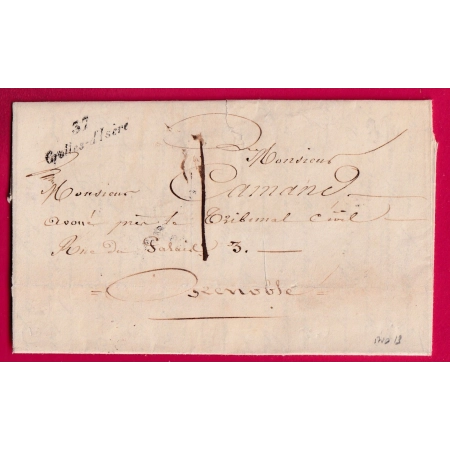 37
Crolles-l'Isère
Monsieur
Monsieur Damand
avoué près le Tribunal Civil
Rue du Palais 3.
= Grenoble =
1